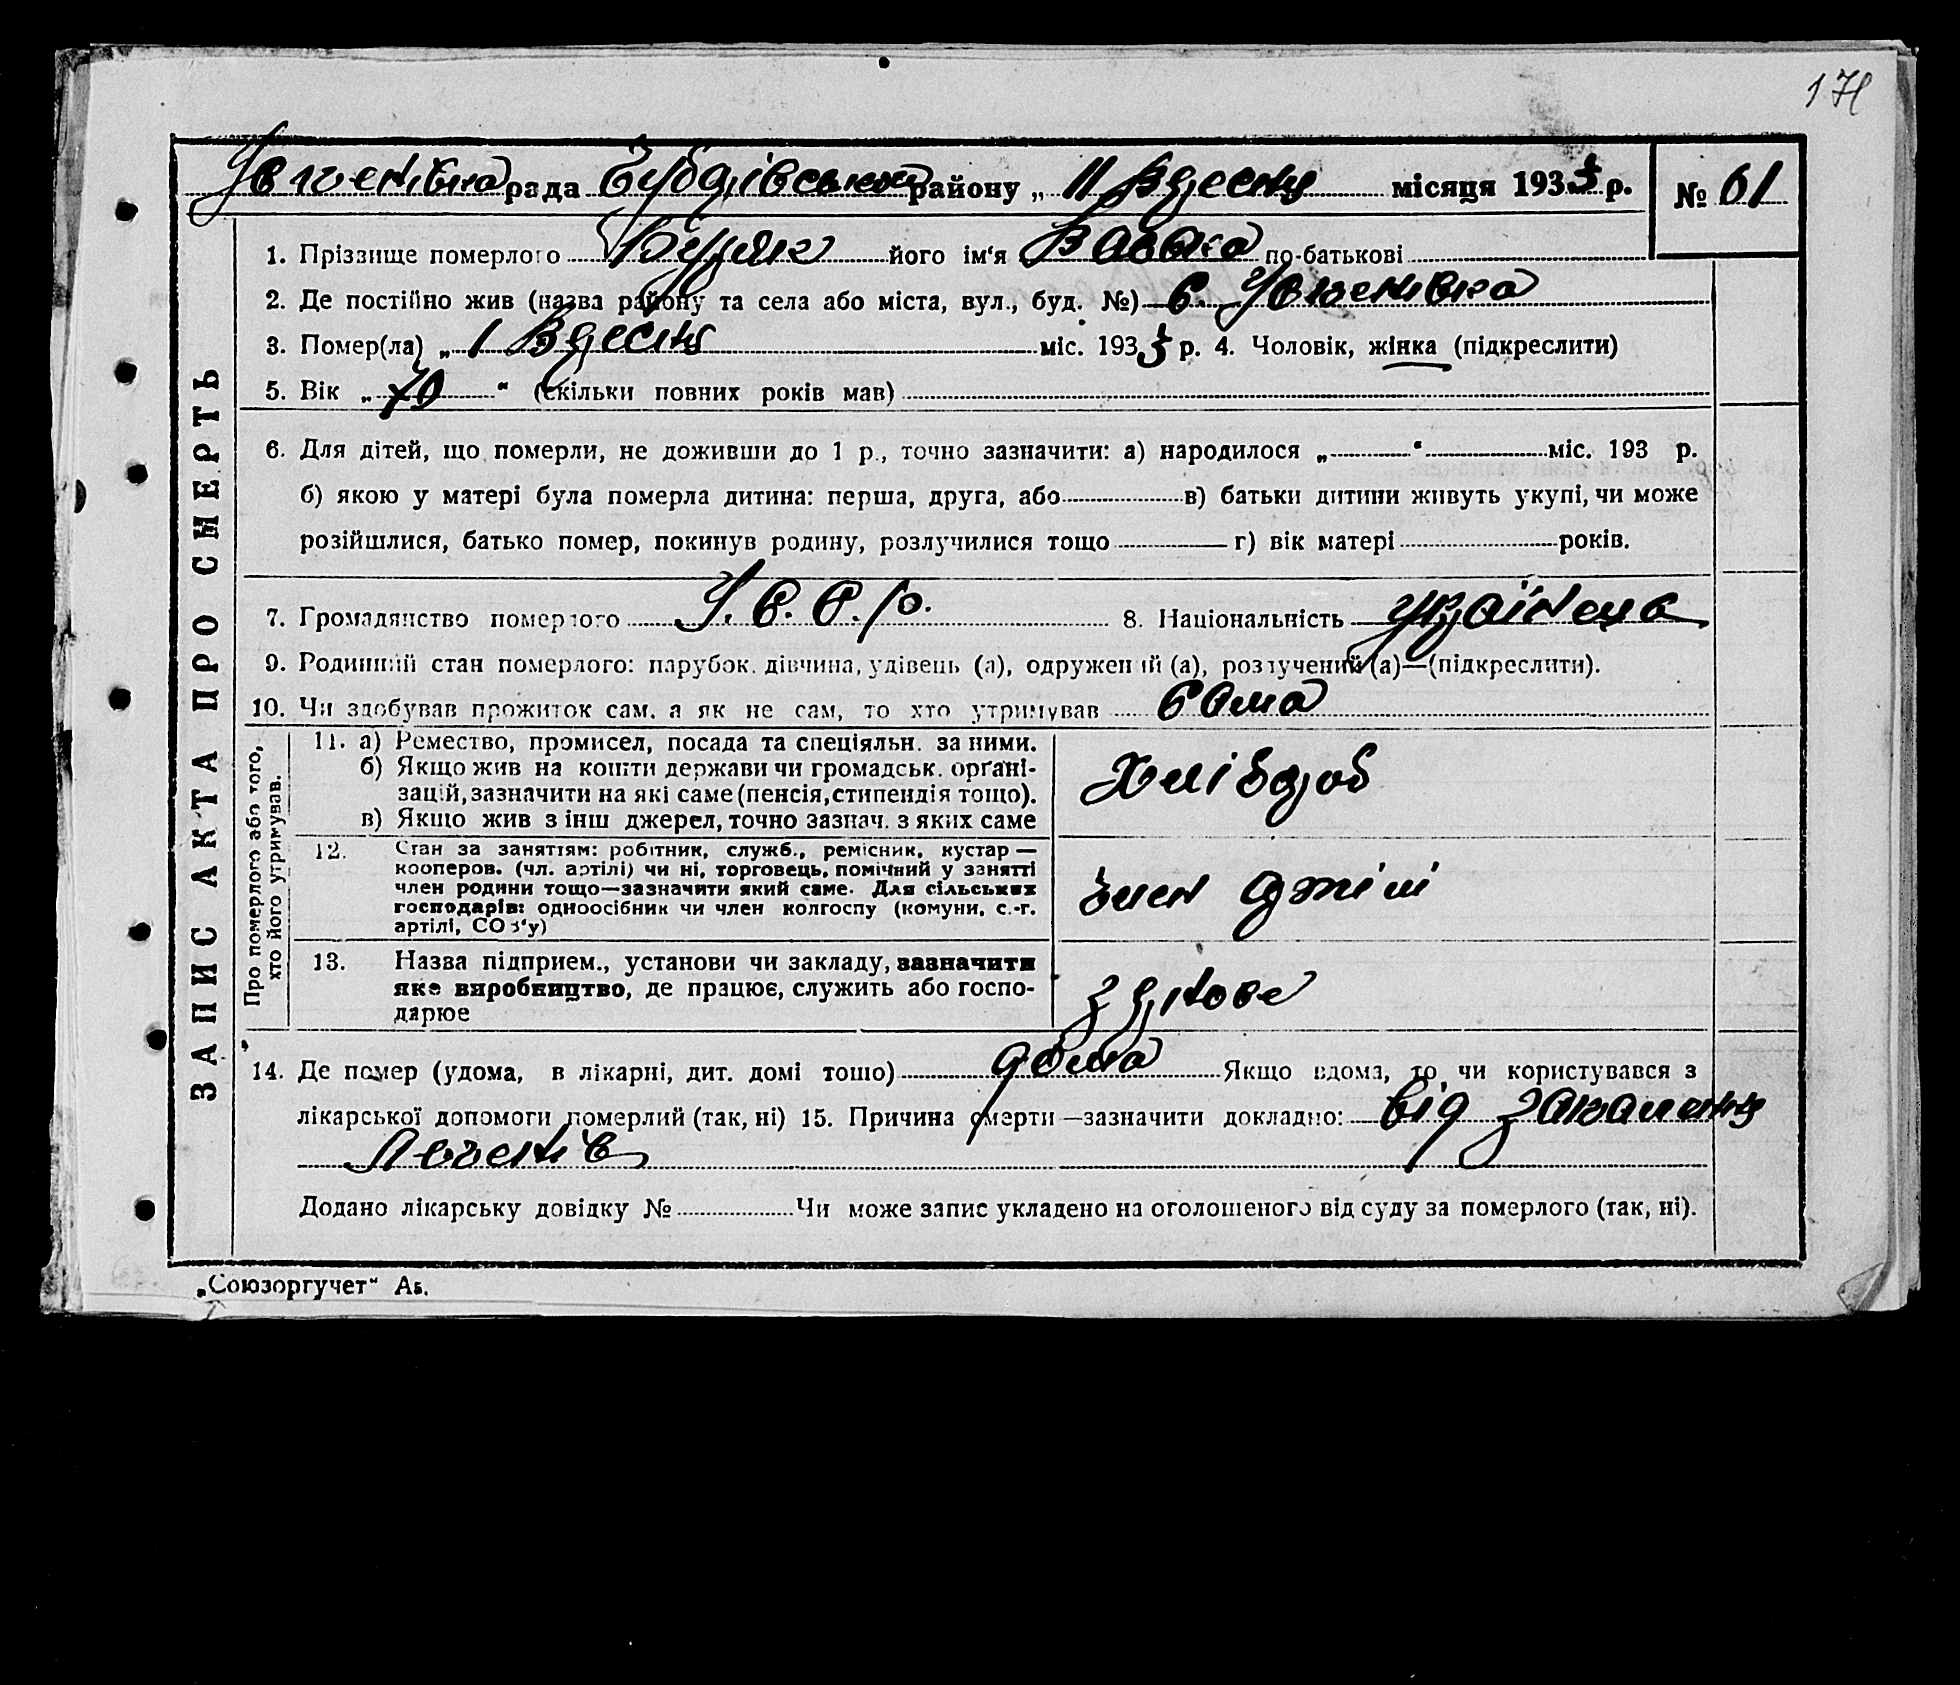 174
рада району „ 11 місяця 1933 р. № 61
ЗАПИС АКТА ПРО СМЕРТЬ
1. Прізвище померлого його ім‘я по-батькові
2. Де постійно жив (назва району та села або міста, вул., буд. №) с.
3. Помер(ла) „ 1 міс. 1933 р. 4. Чоловік, жінка (підкреслити)
5. Вік „ 70 “ (скільки повних років мав)
6. Для дітей, що померли, не доживши до 1 р., точно зазначити: а) народилося „ “ міс. 193 р.
б) якою у матері була померла дитина: перша, друга, або в) батьки дитини живуть укупі, чи може
розійшлися, батько помер, покинув родину, розлучилися тощо г) вік матері років.
7. Громадянство померлого У.С.С.р. 8. Національність
9. Родинний стан померлого: парубок, дівчина, удівець (а), одружений (а), розлучений (а)—(підкреслити).
10. Чи здобував прожиток сам, а як не сам, то хто утримував сама
Про померлого або того, хто його утримував.
11. а) Ремество, промисел, посада та спеціяльн. за ними.
б) Якщо жив на кошти держави чи громадськ. орґані-
зацій, зазначити на які саме (пенсія, стипендія тощо).
в) Якщо жив з інш джерел, точно зазнач. з яких саме
хлібороб
12. Стан за заняттям: робітник, служб., ремісник, кустар —
кооперов. (чл. артілі) чи ні, торговець, помічний у занятті
член родини тощо—зазначити який саме. Для сільських
господарів: одноосібник чи член колгоспу (комуни, с.-г.
артілі, СОЗ‘у)
член артілі
13. Назва підприєм., установи чи закладу, зазначити
яке виробництво, де працює, служить або госпо-
дарює
14. Де помер (удома, в лікарні, дит. домі тощо) дома Якщо вдома, то чи користувався з
лікарської допомоги померлий (так, ні) 15. Причина смерти—зазначити докладно: від
Додано лікарську довідку № Чи може запис укладено на оголошеного від суду за померлого (так, ні).
„Союзоргучет“